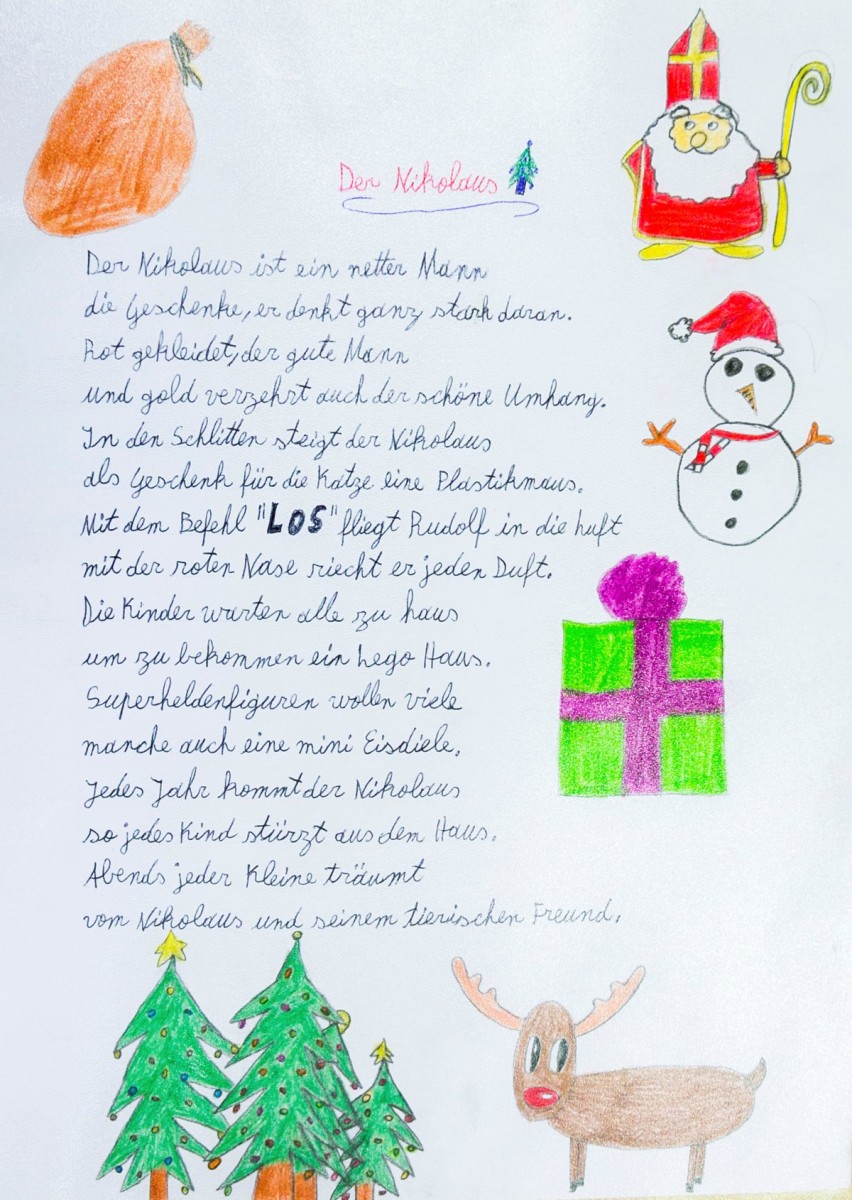 Der Nikolaus
Der Nikolaus ist ein netter Mann
die Geschenke, er denkt ganz stark daran.
Rot gekleidet, der gute Mann
und gold verzehrt auch der schöne Umhang.
In den Schlitten steigt der Nikolaus
als Geschenk für die Katze eine Plastikmaus.
Mit dem Befehl "LOS" fliegt Rudolf in die Luft
mit der roten Nase riecht er jeden Duft.
Die Kinder warten alle zu haus
um zu bekommen ein Lego Haus.
Superheldenfiguren wollen viele
manche auch eine mini Eisdiele.
Jedes Jahr kommt der Nikolaus
so jedes Kind stürzt aus dem Haus.
Abends jeder Kleine träumt
vom Nikolaus und seinem tierischen Freund.